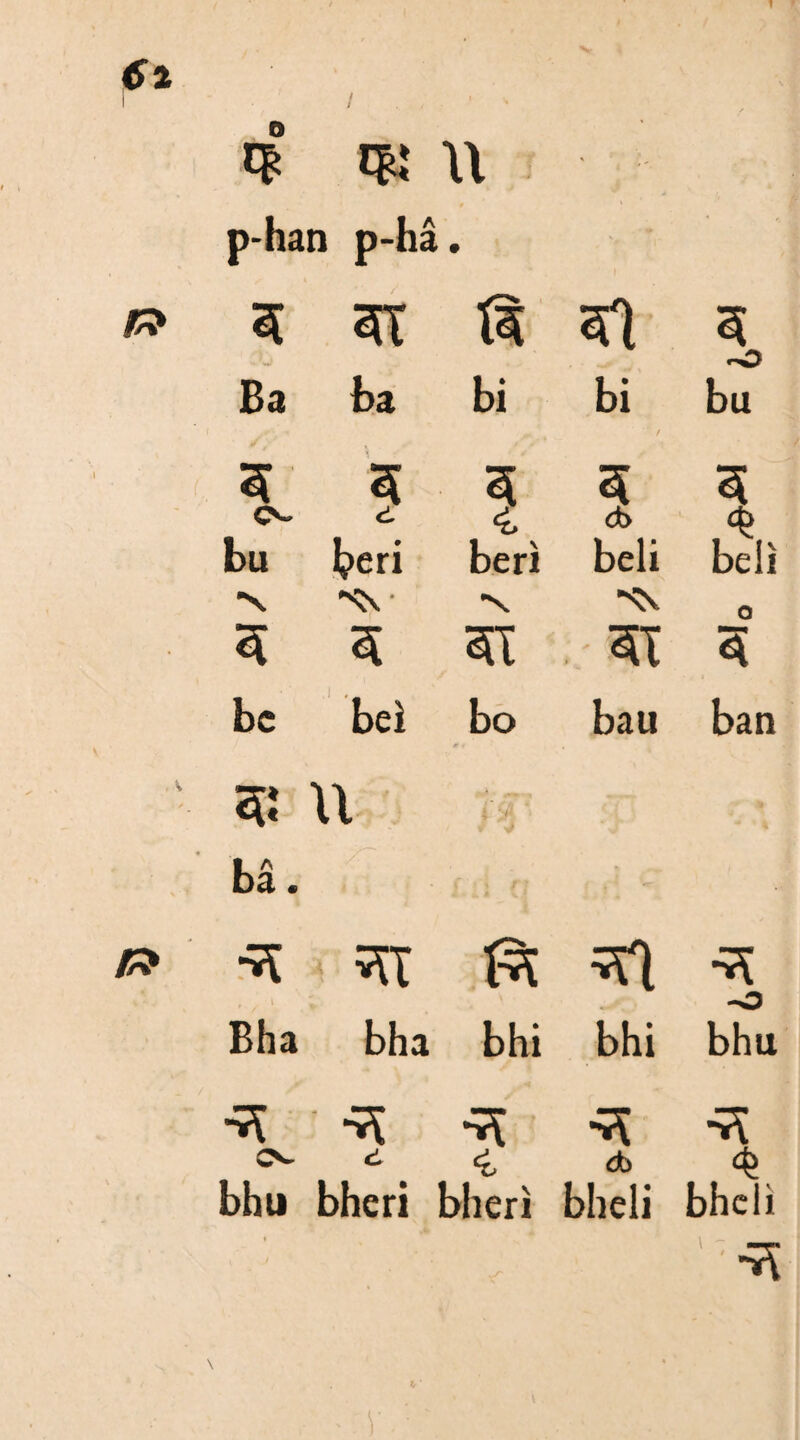 62
फं फः ॥
p-han p-hâ.
ब बा बि बी बु
Ba ba bi bi bu
बू बृ बॄ बॢ बॣ
bu beri berì beli belì
बे बै बो बौ बं
be beì bo bau ban
बः ॥
bâ.
भ भा भि भी भु
Bha bha bhi bhi bhu
भू भृ भॄ भॢ भॣ
bhu bheri bherì bheli bhelì
भ